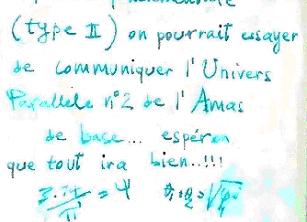 (type II) on pourrait essayer
de communiquer l'Univers
Parallèle n°2 de l'Amas
de base... espéron
que tout ira bien..!!!